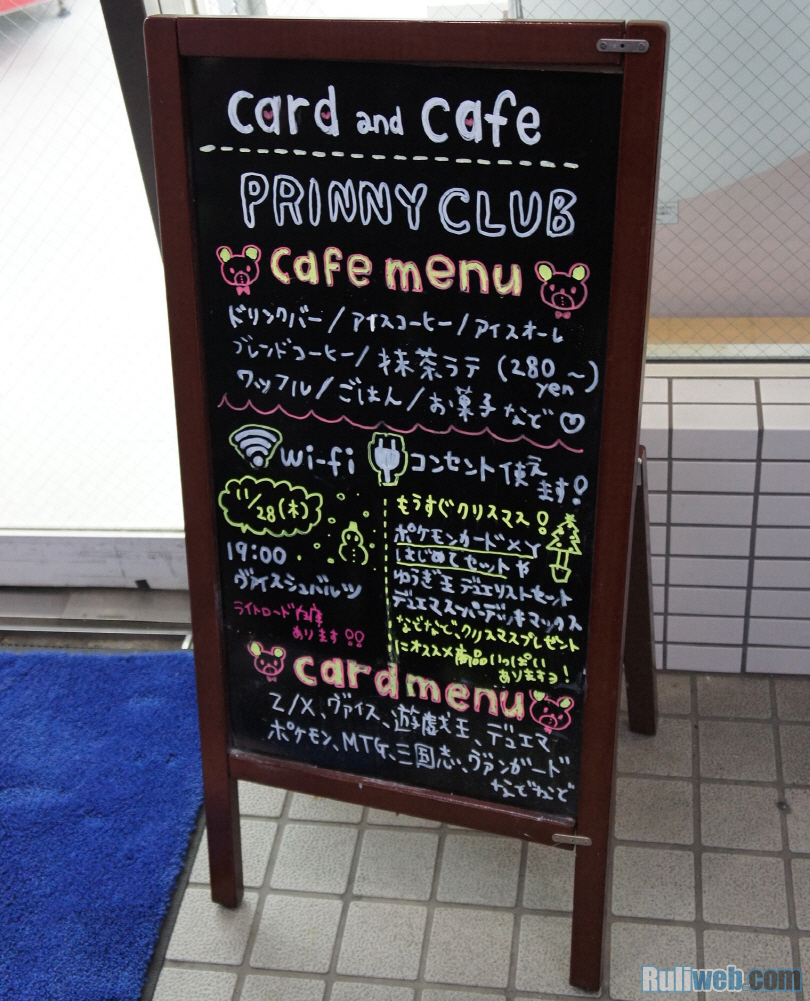 card and cafe
PRINNY CLUB
cafe menu
ドリンクバー/アイスコーヒー/アイスオーレ
ブレンドコーヒー/抹茶ラテ (280yen~)
ワッフル/ごはん/お菓子など♡
wi-fi コンセント使えます!
11/28(木)
19:00
ヴァイスシュバルツ
ライトロード在庫
あります!!
もうすぐクリスマス!
ポケモンカードXY
はじめてセットや
ゆうぎ王デュエリストセット
デュエマスーパーデッキマックス
などなど、クリスマスプレゼント
にオススメ商品いっぱい
ありますヨ!
card menu
Z/X、ヴァイス、遊戯王、デュエマ
ポケモン、MTG、三国志、ヴァンガード
などなど
Ruliweb.com